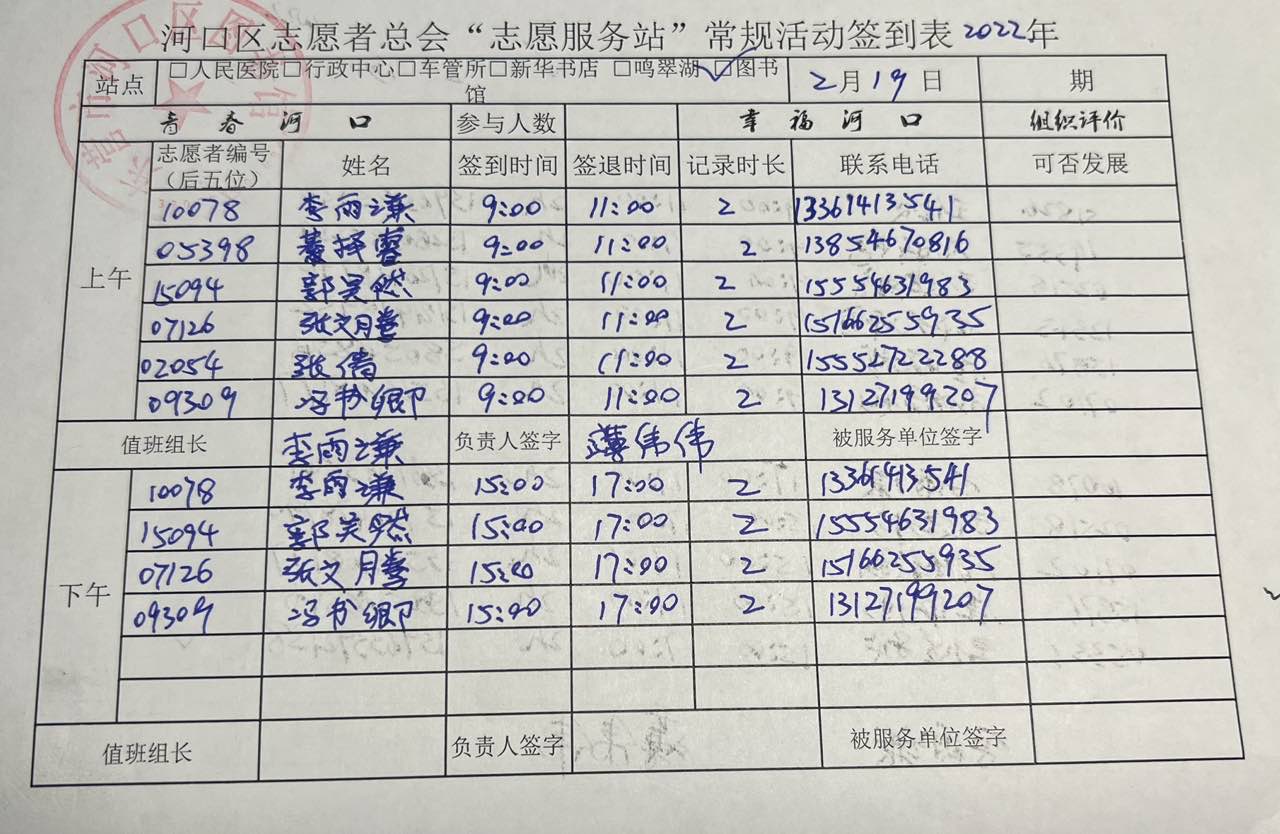 河口区志愿者总会“志愿服务站”常规活动签到表2022年
站点 □人民医院□行政中心□车管所□新华书店 □鸣翠湖 □图书馆 2月19日 期
青春河口 参与人数 幸福河口 组织评价
志愿者编号（后五位） 姓名 签到时间 签退时间 记录时长 联系电话 可否发展
上午
10078 李雨谦 9:00 11:00 2 13361413541
05398 9:00 11:00 2 13854670816
15094 郭昊然 9:00 11:00 2 15554631983
07126 张文月 9:00 11:00 2 15166255935
02054 张倩 9:00 11:00 2 15552722288
09309 冯书卿 9:00 11:00 2 13127199207
值班组长 李雨谦 负责人签字 薄伟伟 被服务单位签字
下午
10078 李雨谦 15:00 17:00 2 13361413541
15094 郭昊然 15:00 17:00 2 15554631983
07126 张文月 15:00 17:00 2 15166255935
09309 冯书卿 15:00 17:00 2 13127199207
值班组长 负责人签字 被服务单位签字